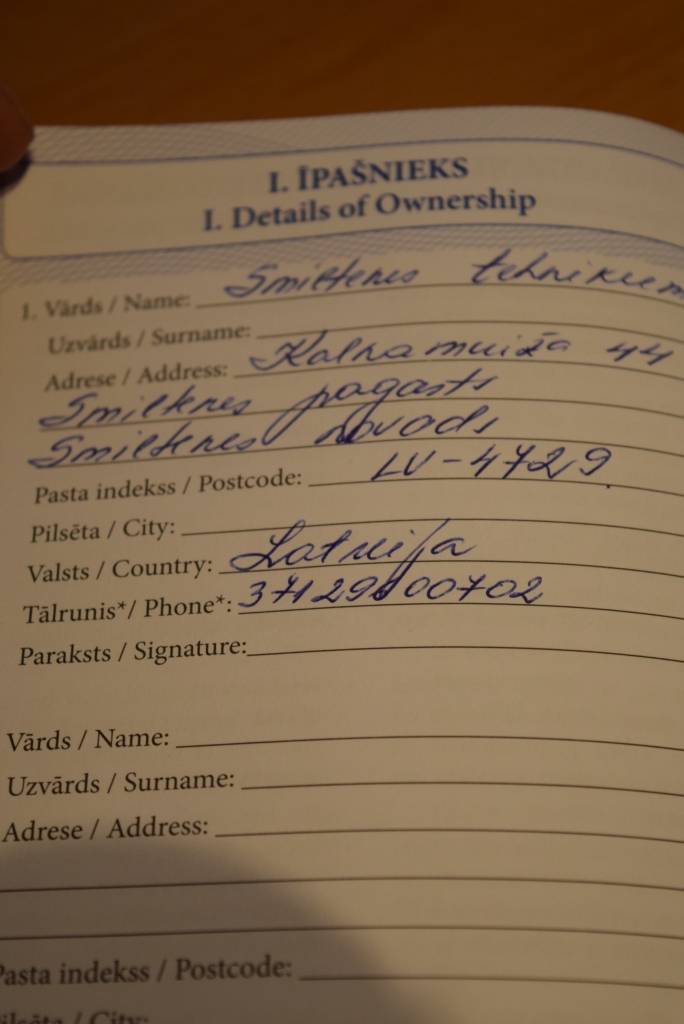 I. ĪPAŠNIEKS
I. Details of Ownership
1. Vārds / Name: Smiltenes tehnikum
Uzvārds / Surname:
Adrese / Address: Kalnamuiža 44
Smiltenes pagasts
Smiltenes novads
Pasta indekss / Postcode: LV-4729.
Pilsēta / City:
Valsts / Country: Latvija
Tālrunis*/ Phone*:
Paraksts / Signature:
Vārds / Name:
Uzvārds / Surname:
Adrese / Address:
Pasta indekss / Postcode:
Pilsēta / City: